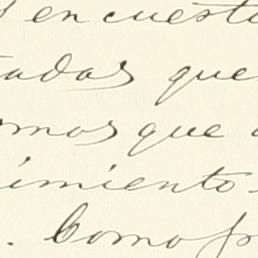 en cuesti
adas que
mos que
imiento
. Como